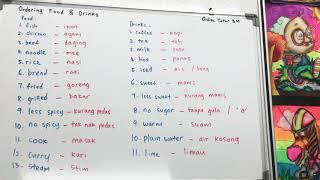 Ordering Food & Drinks
Online Tutor BM
Food :
1. fish - ikan
2. chicken - ayam
3. beef - daging
4. noodles - mee
5. rice - nasi
6. bread - roti
7. fried - goreng
8. grilled - bakar
9. less spicy - kurang pedas
10. no spicy - tak nak pedas
11. cook - masak
12. curry - kari
13. steam - stim
Drinks :
1. coffee - kopi
2. tea - teh
3. milk - susu
4. hot - panas
5. iced - ais
6. sweet - manis
7. less sweet - kurang manis
8. no sugar - tanpa gula / "o"
9. warm - suam
10. plain water - air kosong
11. lime - limau